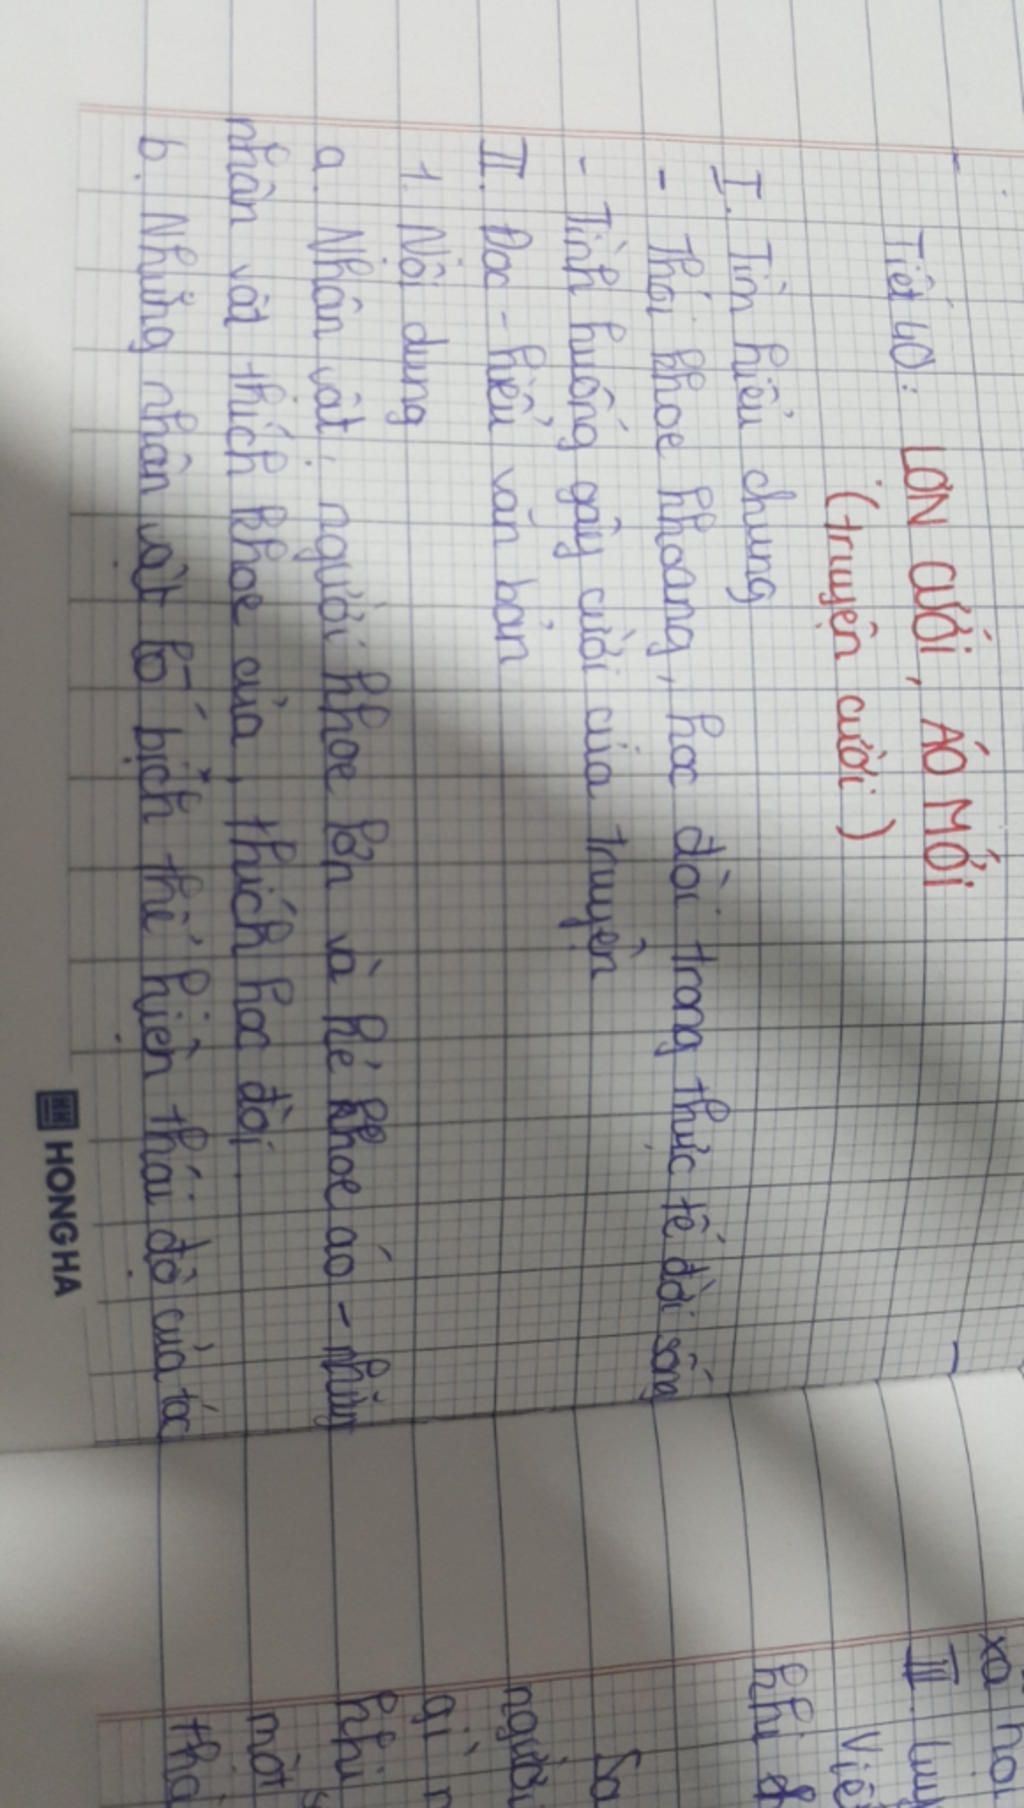 Tiết 40: LỢN CƯỚI, ÁO MỚI
(truyện cười)
I. Tìm hiểu chung
- Thói khoe khoang, học đòi trong thực tế đời sống
- Tình huống gây cười của truyện
II. Đọc - hiểu văn bản
1. Nội dung
a. Nhân vật: người khoe lợn và kẻ khoe áo - những
nhân vật thích khoe của, thích học đòi.
b. Những nhân vật lố bịch thể hiện thái độ của tác
HONG HA
III. Luy
Việ
khi đ
người
gì n
khi
một